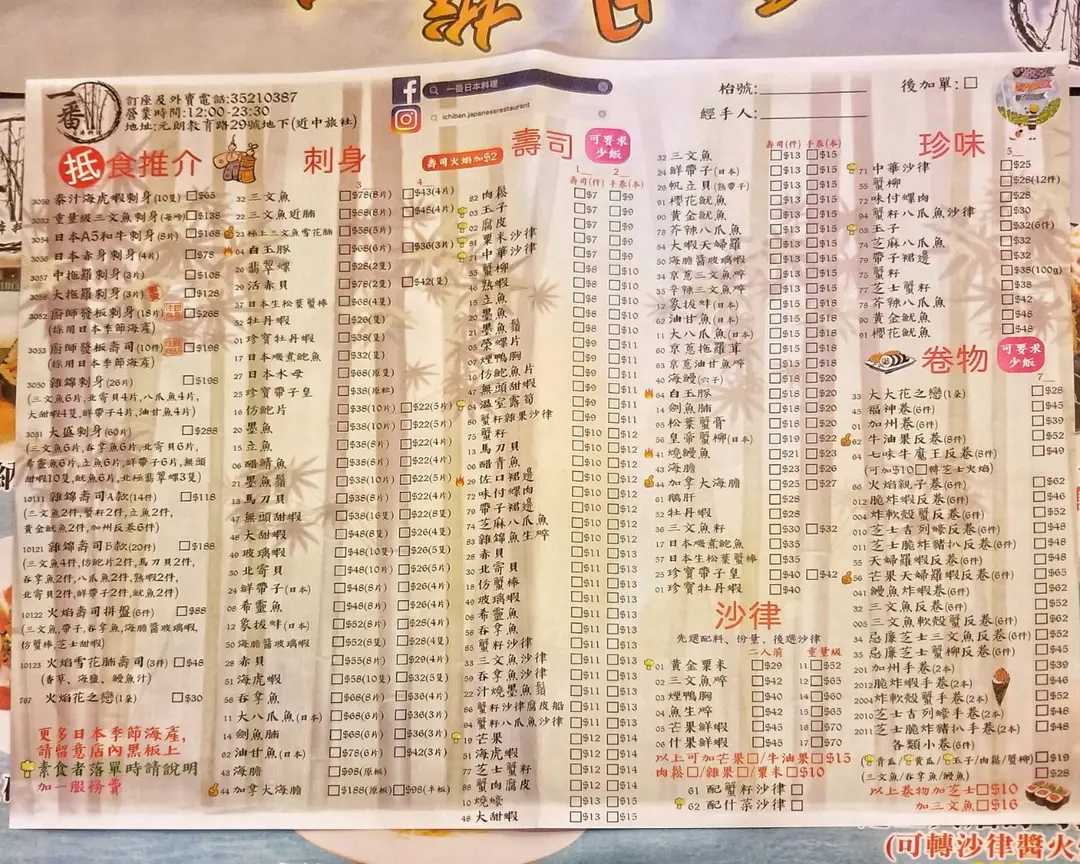 一番
訂座及外賣電話:35210387
營業時間:12:00-23:30
地址:元朗教育路29號地下(近中旅社)
一番日本料理
ichiban.japaneserestaurant
枱號:
後加單:
經手人:
抵食推介
3050 泰汁海虎蝦刺身(10隻) $65
3032 重量級三文魚刺身 $138
3054 日本A5和牛刺身(8片) $168
3055 日本赤身刺身(4片) $78
3057 中拖羅刺身(3片) $108
3058 大拖羅刺身(3片) $128
3052 廚師發板刺身(18片) $268
(採用日本季節海產)
3053 廚師發板壽司(10件) $198
(採用日本季節海產)
3030 雜錦刺身(26片) $198
(三文魚6片,北寄貝4片,八爪魚4片,
大甜蝦4隻,鮮帶子4片,油甘魚4片)
3051 大盛刺身(60片) $288
(三文魚6片,吞拿魚6片,北寄貝6片,
希靈魚6片,立魚6片,鮮帶子6片,無頭
甜蝦10隻,魷魚6片,北極翡翠螺3隻)
10111 雜錦壽司A款(14件) $118
(三文魚2件,蟹籽2件,立魚2件,
黃金魷魚2件,加州反卷6件)
10121 雜錦壽司B款(20件) $188
(三文魚4件,仿鮑片2件,馬刀貝2件,
吞拿魚2件,八爪魚2件,熟蝦2件,
北寄貝2件,鮮帶子2件,魷魚2件)
10122 火焰壽司拼盤(6件) $88
(三文魚,帶子,吞拿魚,海膽醬玻璃蝦,
仿蟹棒,芝士甜蝦)
10123 火焰雪花腩壽司(3件) $48
(香草,海鹽,鰻魚汁)
767 火焰花之戀(1朵) $30
更多日本季節海產,
請留意店內黑板上
素食者落單時請說明
加一服務費
刺身
3 4
32 三文魚 $78(8片) $43(4片)
22 三文魚近腩 $88(8片) $48(4片)
23 極上三文魚雪花腩 $58(5片)
64 白玉豚 $68(6片) $36(3片)
20 翡翠螺 $28(2隻)
29 活赤貝 $78(2隻) $42(隻)
57 日本生松葉蟹棒 $68(4隻)
52 牡丹蝦 $26(隻)
01 珍寶牡丹蝦 $38(隻)
17 日本磯煮鮑魚 $32(隻)
27 日本水母 $68(原隻)
25 珍寶帶子皇 $38(原粒)
16 仿鮑片 $38(10片) $22(5片)
20 墨魚 $38(10片) $22(5片)
15 立魚 $38(8片) $22(4片)
06 醋鯖魚 $38(8片) $22(4片)
21 墨魚鬚 $38(8片) $22(5片)
13 馬刀貝 $38(8片) $22(4片)
47 無頭甜蝦 $38(16隻) $22(8隻)
48 大甜蝦 $48(8隻) $26(4隻)
49 玻璃蝦 $48(10隻) $26(5隻)
30 北寄貝 $48(10片) $26(5片)
24 鮮帶子(日本) $48(8片) $26(4片)
08 希靈魚 $48(8片) $26(4片)
12 象拔蚌(日本) $52(8片) $28(4片)
50 海膽醬玻璃蝦 $52(8隻) $28(4隻)
28 赤貝 $55(8片) $29(4片)
51 海虎蝦 $58(10隻) $32(5隻)
58 吞拿魚 $68(8片) $36(4片)
11 大八爪魚(日本) $68(6片) $36(3片)
14 劍魚腩 $68(6片) $36(3片)
62 油甘魚(日本) $78(6片) $42(3片)
43 海膽 $98(原板)
44 加拿大海膽 $188(原板) $98(半板)
壽司火焰加$2
壽司
可要求少飯
1 2
壽司(件) 手卷(本)
82 肉鬆 $7 $9
03 玉子 $7 $9
02 腐皮 $7 $9
81 粟米沙律 $7 $9
71 中華沙律 $7 $9
55 蟹柳 $8 $10
46 熟蝦 $8 $10
15 立魚 $8 $10
20 墨魚 $8 $10
21 墨魚鬚 $8 $10
05 榮螺片 $9 $11
07 煙鴨胸 $9 $11
16 仿鮑魚片 $9 $11
47 無頭甜蝦 $9 $11
04 溫室露筍 $9 $11
80 蟹籽雜果沙律 $9 $11
75 蟹籽 $10 $12
13 馬刀貝 $10 $12
06 醋青魚 $10 $12
29 左口裙邊 $10 $12
72 味付螺肉 $10 $12
79 帶子裙邊 $10 $12
74 芝麻八爪魚 $10 $12
83 雜錦魚生啐 $10 $12
28 赤貝 $11 $13
30 北寄貝 $11 $13
18 仿蟹棒 $11 $13
49 玻璃蝦 $11 $13
08 希靈魚 $11 $13
58 吞拿魚 $11 $13
85 蟹籽沙律 $11 $13
33 三文魚沙律 $11 $13
59 吞拿魚沙律 $11 $13
22 汁燒墨魚鬚 $11 $13
86 蟹籽沙律腐皮船 $11 $13
94 蟹籽八爪魚沙律 $11 $13
19 芒果 $11 $13
51 海虎蝦 $12 $14
77 芝士蟹籽 $12 $14
88 蟹肉腐皮 $12 $14
10 燒蠔 $13 $15
48 大甜蝦 $13 $15
壽司(件) 手卷(本)
32 三文魚 $13 $15
24 鮮帶子(日本) $13 $15
26 帆立貝(熟帶子) $13 $15
91 櫻花魷魚 $13 $15
90 黃金魷魚 $13 $15
78 芥辣八爪魚 $13 $15
84 大蝦天婦羅 $13 $15
50 海膽醬玻璃蝦 $13 $15
34 京蔥三文魚啐 $13 $15
35 辛辣三文魚啐 $13 $15
12 象拔蚌(日本) $15 $18
62 油甘魚(日本) $15 $18
11 大八爪魚(日本) $15 $18
60 京蔥拖羅茸 $15 $18
63 京蔥油甘魚啐 $15 $18
40 海鰻(穴子) $18 $20
64 白玉豚 $18 $20
14 劍魚腩 $18 $20
65 松葉蟹膏 $18 $20
56 皇帝蟹柳(日本) $19 $22
41 燒鰻魚 $21 $23
43 海膽 $23 $26
44 加拿大海膽 $25 $27
61 鵝肝 $28
52 牡丹蝦 $28
36 三文魚籽 $30 $32
17 日本磯煮鮑魚 $35
57 日本生松葉蟹棒 $35
25 珍寶帶子皇 $40 $42
01 珍寶牡丹蝦 $40
沙律
先選配料、份量、後選沙律
二人前 重量級
01 黃金粟米 $29 11 $52
02 三文魚啐 $42 12 $65
03 煙鴨胸 $40 14 $60
04 魚生啐 $42 15 $65
05 芒果鮮蝦 $45 16 $70
06 什果鮮蝦 $45 17 $70
以上可加芒果/牛油果$15
肉鬆/雜果/粟米$10
61 配蟹籽沙律
62 配什菜沙律
珍味
5
71 中華沙律 $25
55 蟹柳 $28(12件)
72 味付螺肉 $28
94 蟹籽八爪魚沙律 $30
03 玉子 $32(6件)
74 芝麻八爪魚 $32
79 帶子裙邊 $32
75 蟹籽 $38(100g)
77 芝士蟹籽 $38
78 芥辣八爪魚 $42
90 黃金魷魚 $48
91 櫻花魷魚 $48
卷物
可要求少飯
7
33 大大花之戀(1朵) $28
45 福神卷(6件) $45
01 加州卷(6件) $39
62 牛油果反卷(8件) $52
64 七味牛魔王反卷(8件) $49
(可加$10轉芝士火焰)
66 火焰親子卷(6件) $62
012 脆炸蝦反卷(6件) $46
004 炸軟殼蟹反卷(6件) $52
010 芝士吉列蠔反卷(6件) $48
011 芝士脆炸豬扒反卷(6件) $48
55 天婦羅蝦反卷(6件) $48
56 芒果天婦羅蝦反卷(6件) $65
041 鰻魚炸蝦卷(6件) $52
32 三文魚反卷(6件) $62
009 三文魚軟殼蟹反卷(6件) $62
34 忌廉芝士三文魚反卷(6件) $52
35 忌廉芝士蟹柳反卷(6件) $48
201 加州手卷(2本) $39
2012 脆炸蝦手卷(2本) $46
2004 炸軟殼蟹手卷(2本) $52
2010 芝士吉列蠔手卷(2本) $48
2011 芝士脆炸豬扒手卷(2本) $48
各類小卷(6件)
(青瓜/黃瓜/玉子/肉鬆/蟹柳) $19
(三文魚/吞拿魚/鰻魚) $28
以上卷物加芝士$10
加三文魚$16
(可轉沙律醬火